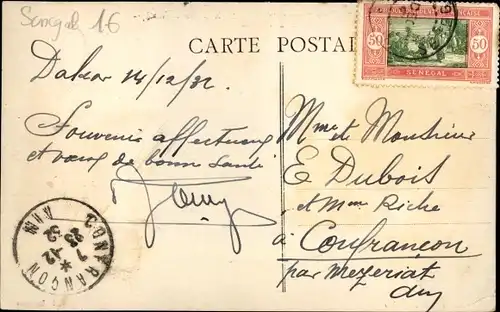 Sénégal 16
CARTE POSTALE
50 SENEGAL 50
Dakar 14/12/32
Souvenir affectueux
et voeux de bonne santé
Mme et Monsieur
E Dubois
et Mme Riche
à Confrançon
par Mezeriat
Ain
CONFRANÇON
AIN
7 -12
23
32